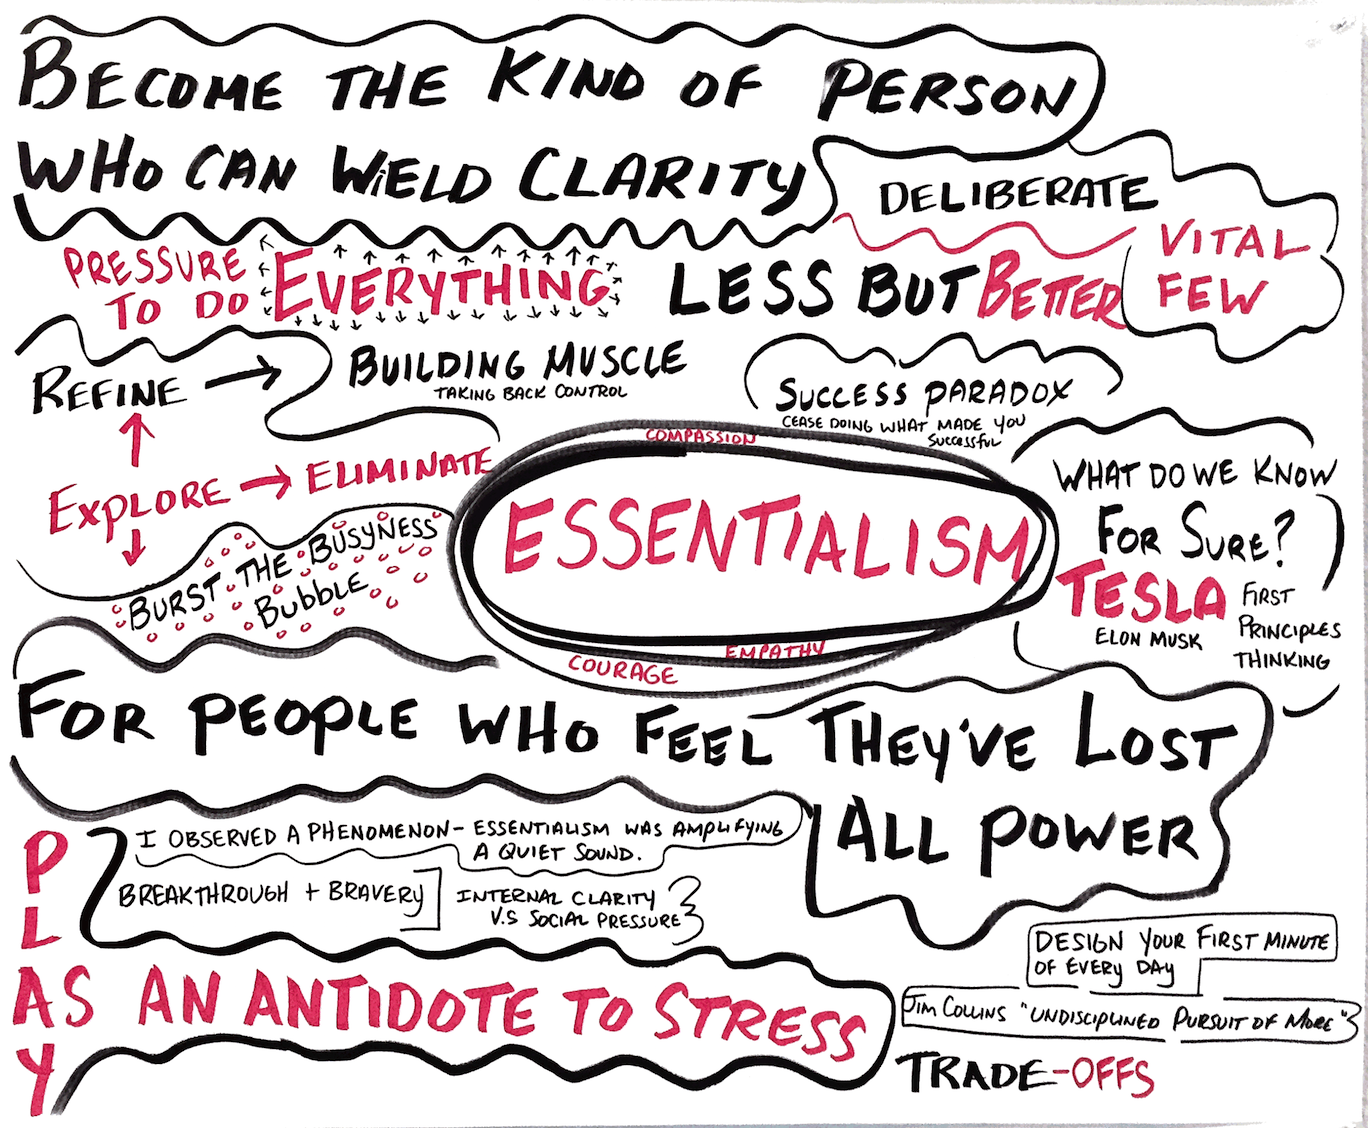 BECOME THE KIND OF PERSON
WHO CAN WiELD CLARITY
DELIBERATE
VITAL
FEW
PRESSURE
TO DO
EVERYTHING
LESS BUT BETTER
REFINE
BUILDING MUSCLE
TAKING BACK CONTROL
SUCCESS PARADOX
CEASE DOING WHAT MADE YOU
SUCCESSFUL
EXPLORE
ELIMINATE
BURST THE BUSYNESS
BubbLE
COMPASSION
ESSENTIALISM
EMPATHY
COURAGE
WHAT DO WE KNOW
FOR SURE?
TESLA
ELON MUSK
FIRST
PRINCIPLES
THINKING
FOR PEOPLE WHO FEEL THEY'VE LOST
ALL POWER
I OBSERVED A PHENOMENON - ESSENTIALISM WAS AMPLIFYING
A QUIET SOUND.
BREAKTHROUGH + BRAVERY
INTERNAL CLARITY
V.S SOCIAL PRESSURE
PLAY
AS AN ANTIDOTE TO STRESS
DESIGN YOUR FIRST MINUTE
OF EVERY DAY
JIM COLLINS "UNDISCIPLINED PURSUIT OF MORE"
TRADE-OFFS